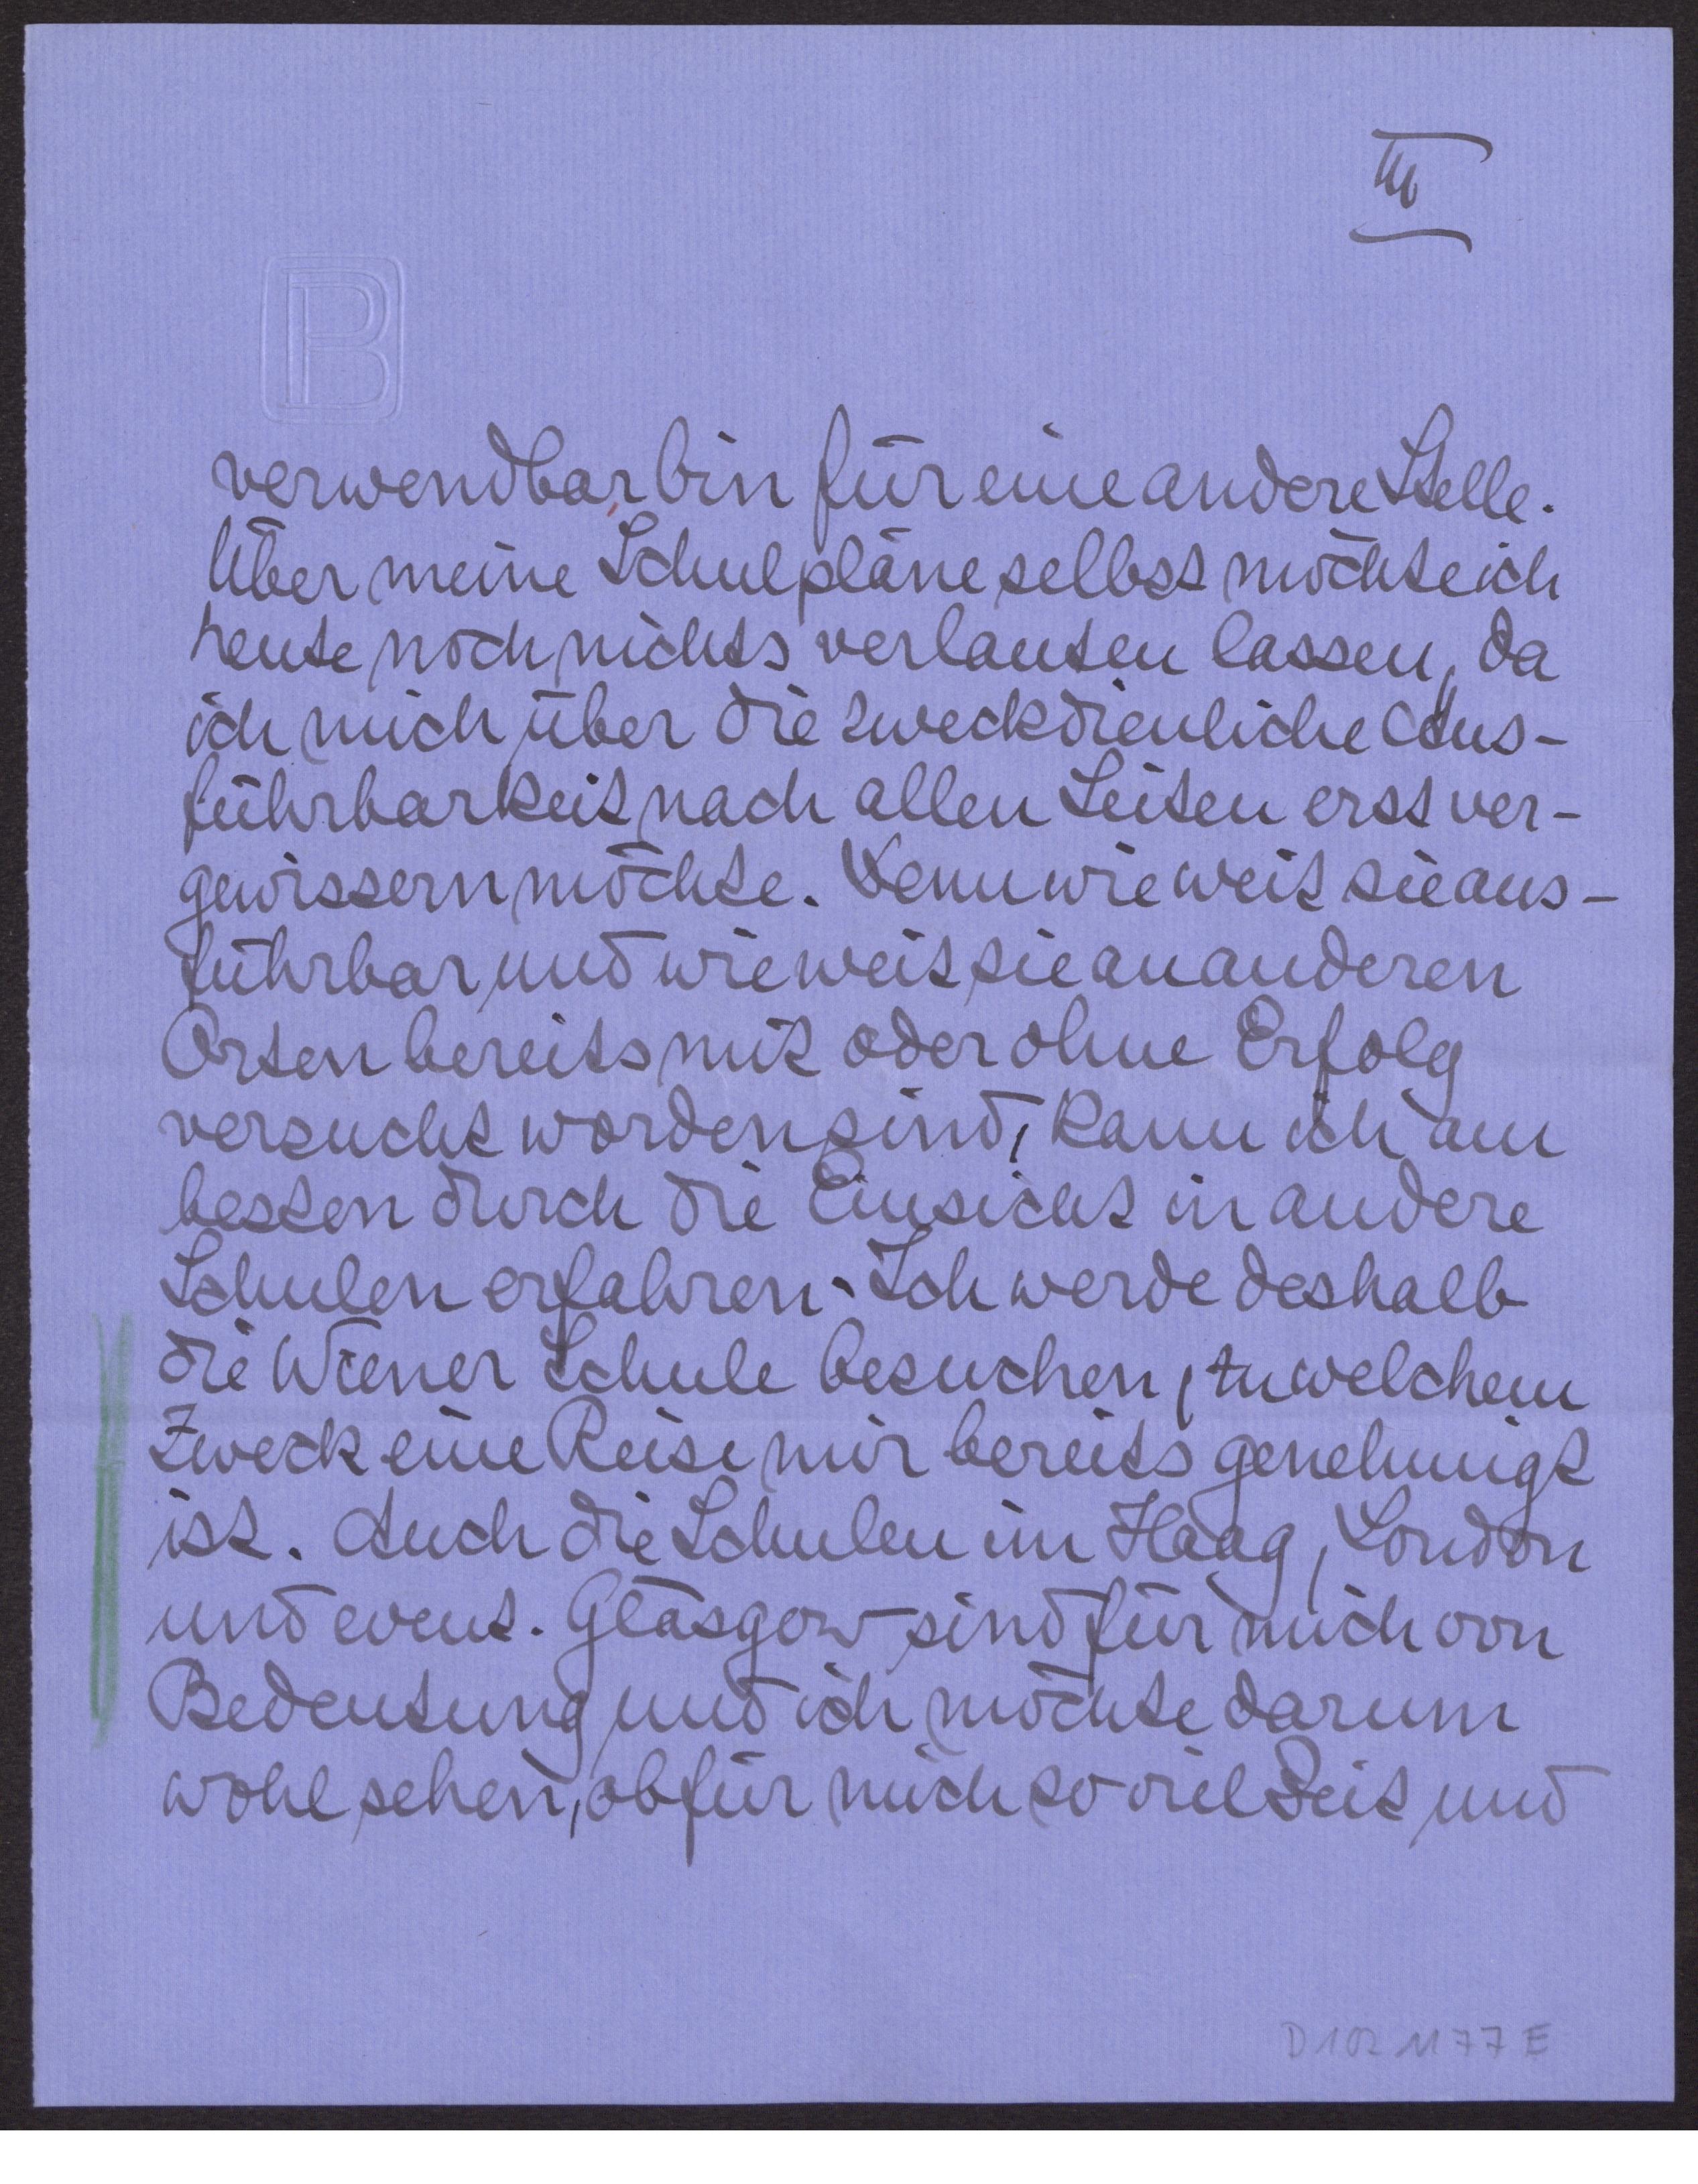 III
B
verwendbar bin für eine andere Stelle.
Über meine Schulpläne selbst möchte ich
heute noch nichts verlauten lassen, da
ich mich über die zweckdienliche Aus-
führbarkeit nach allen Seiten erst ver-
gewissern möchte. Denn wie weit sie aus-
führbar und wie weit sie an anderen
Orten bereits mit oder ohne Erfolg
versucht worden sind, kann ich am
besten durch die Einsicht in andere
Schulen erfahren. Ich werde deshalb
die Wiener Schule besuchen, zu welchem
Zweck eine Reise mir bereits genehmigt
ist. Auch die Schulen im Haag, London
und event. Glasgow sind für mich von
Bedeutung und ich möchte darum
wohl sehen, ob für mich so viel Zeit und
D 102 1177 E